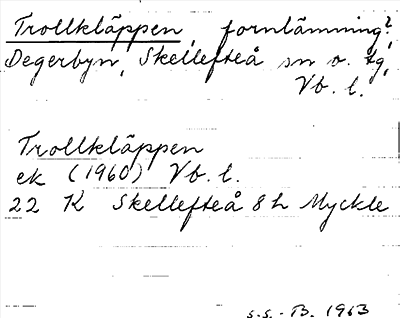 Trollkläppen, fornlämning?
Degerbyn, Skellefteå sn o. tg,
Vb. l.
Trollkläppen
ek (1960) Vb. l.
22 K Skellefteå 8 h Myckle
s.s.-B. 1963